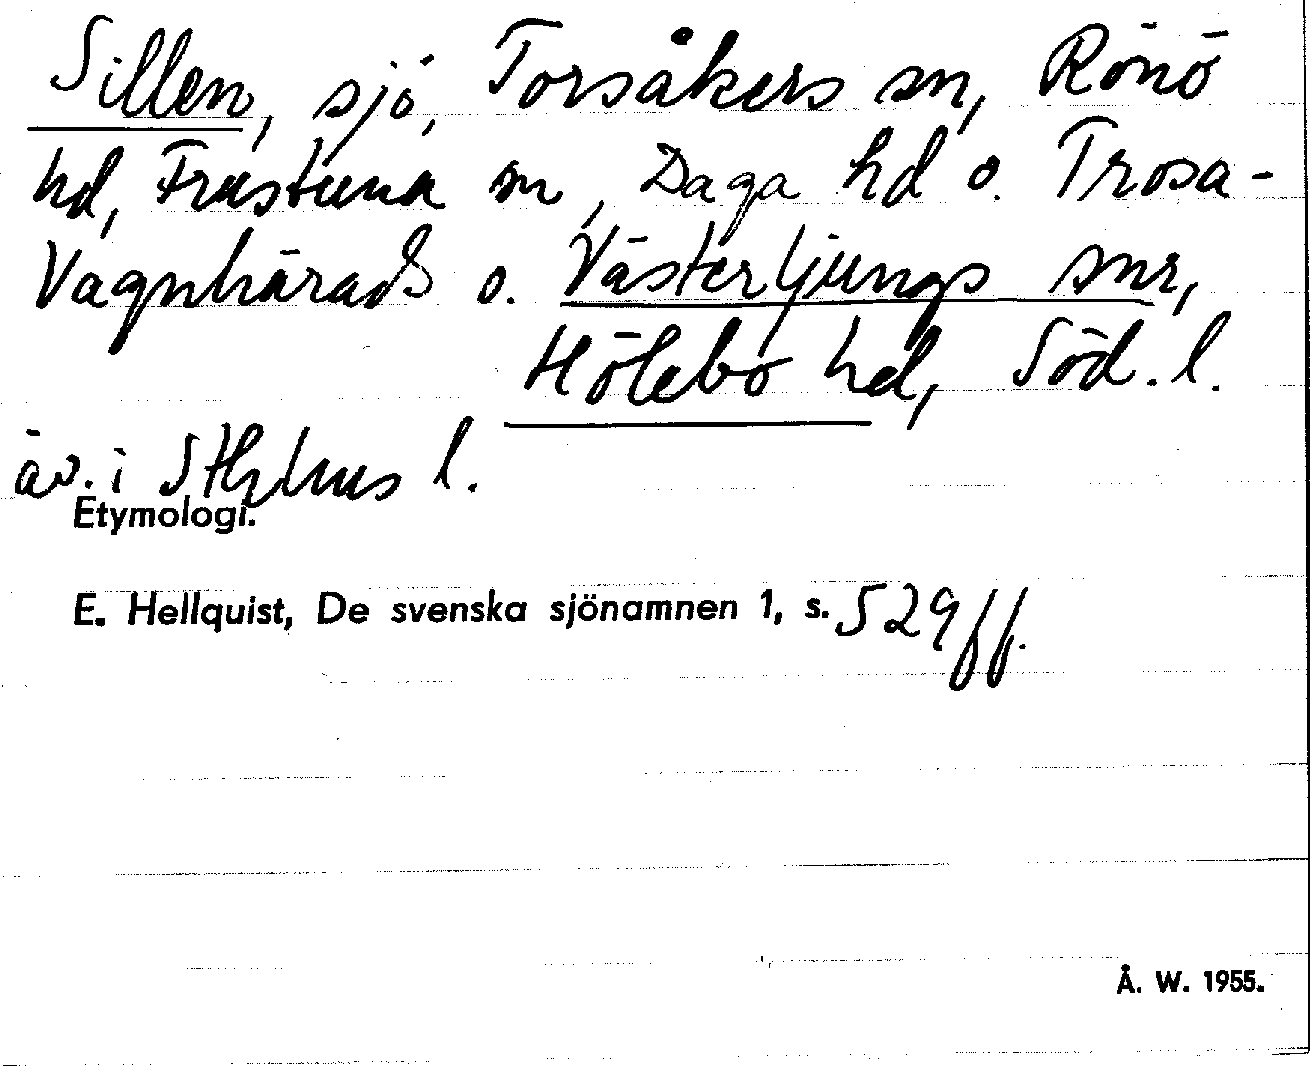 Sillen, sjö, Torsåkers sn, Rönö
hd, Frustuna sn, Daga hd o. Trosa-
Vagnhärads o. Västerljungs snr,
Hölebo hd, Söd. l.
äv. i Sthlms l.
Etymologi.
E. Hellquist, De svenska sjönamnen 1, s. 529 ff.
Å. W. 1955.